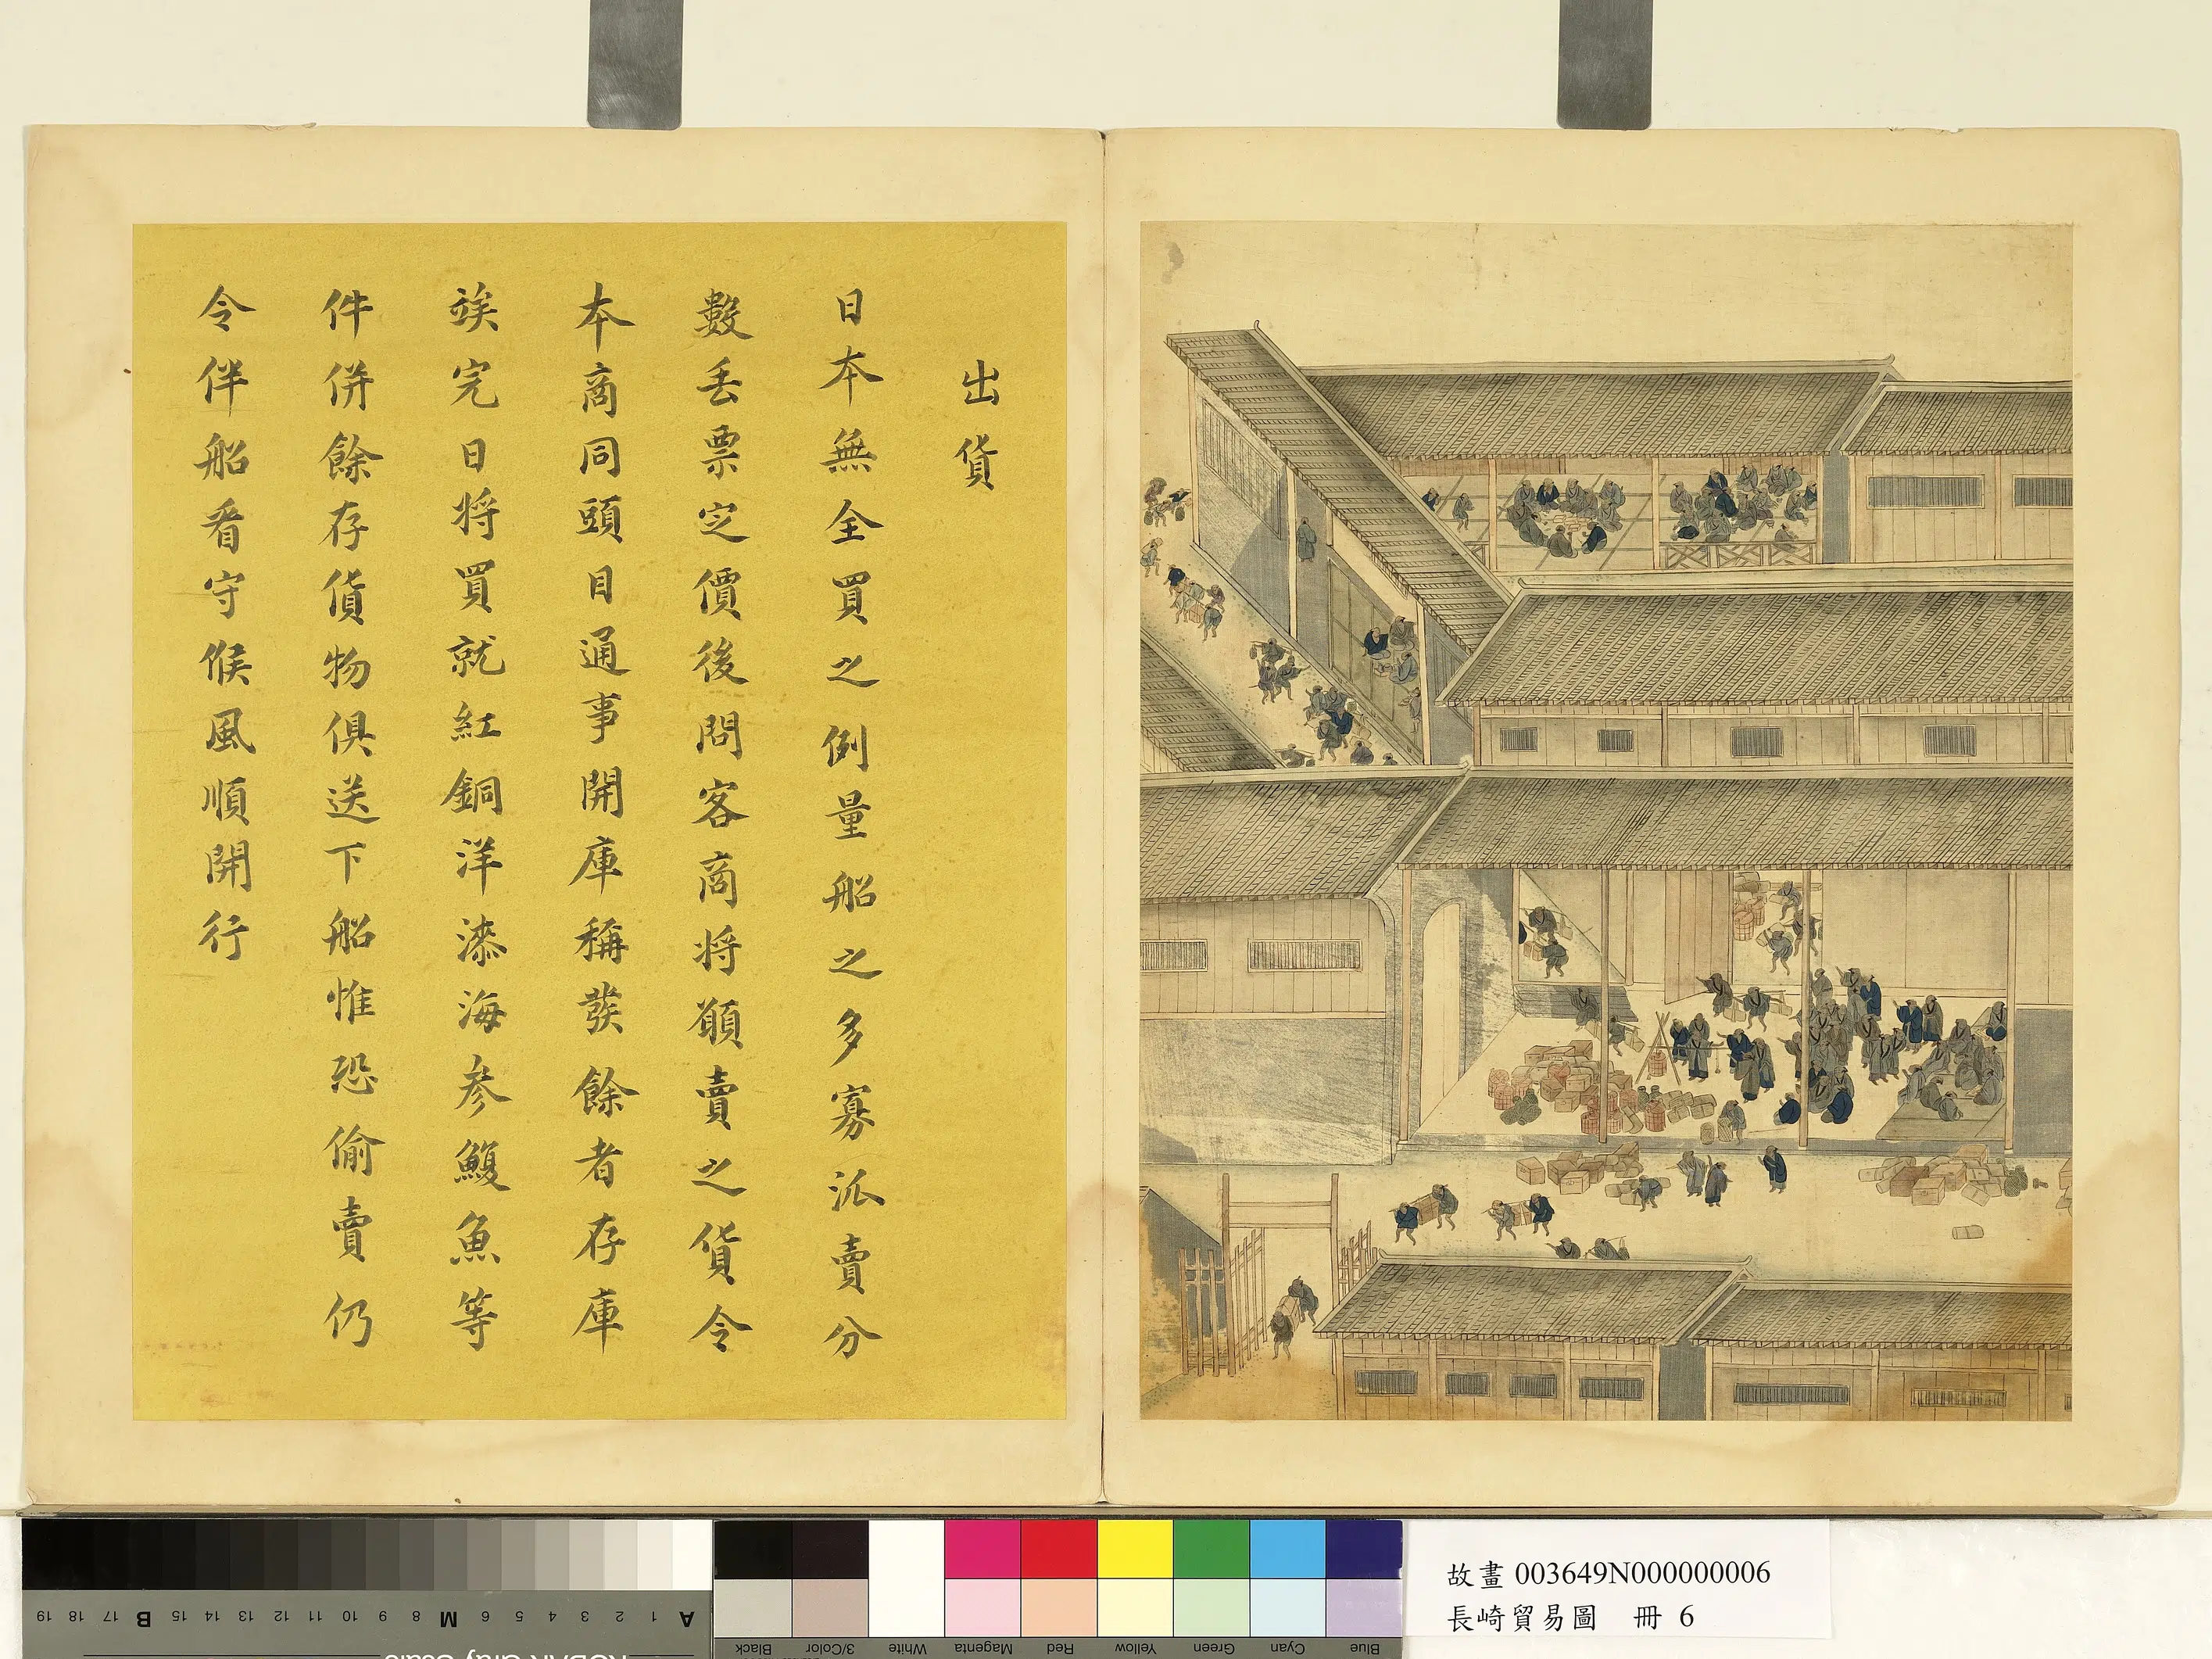 出貨
日本無全買之例量船之多寡派賣分
數丟票定價後問客商将願賣之貨令
本商同頭目通事開庫稱發餘者存庫
竢完日将買就紅銅洋漆海参鰒魚等
件併餘存貨物俱送下船惟恐偷賣仍
令伴船看守候風順開行
故畫 003649N000000006
長崎貿易圖 冊 6
A 1 2 3 4 5 6 M 8 9 10 11 12 13 14 15 B 17 18 19
Blue Cyan Green Yellow Red Magenta White 3/Color Black